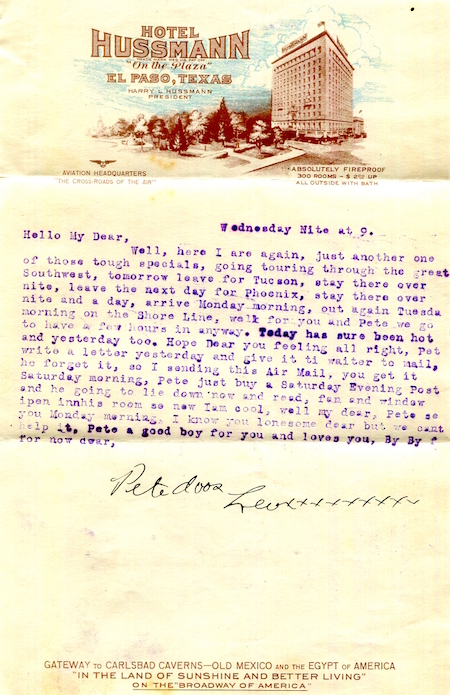 HOTEL
HUSSMANN
"On the Plaza"
EL PASO, TEXAS
HARRY L. HUSSMANN
PRESIDENT
AVIATION HEADQUARTERS
"THE CROSS-ROADS OF THE AIR"
ABSOLUTELY FIREPROOF
300 ROOMS - $ 2.00 UP
ALL OUTSIDE WITH BATH
Wednesday Nite at 9.
Hello My Dear,
Well, here I are again, just another one
of those tough specials, going touring through the great
Southwest, tomorrow leave for Tucson, stay there over
nite, leave the next day for Phoenix, stay there over
nite and a day, arrive Monday morning, out again Tuesda
morning on the Shore Line, walk for you and Pete we go
to have a few hours in anyway. Today has sure been hot
and yesterday too. Hope Dear you feeling all right, Pet
write a letter yesterday and give it ti waiter to mail,
he forget it, so I sending this Air Mail, you get it
Saturday morning, Pete just buy a Saturday Evening Post
and he going to lie down now and read, fan and window
ipen innhis room se new Iam cool, well my dear, Pete se
you Monday morning, I know you lonesome dear but we cant
help it, Pete a good boy for you and loves you, By By f
for now dwar,
GATEWAY TO CARLSBAD CAVERNS—OLD MEXICO AND THE EGYPT OF AMERICA
"IN THE LAND OF SUNSHINE AND BETTER LIVING"
ON THE "BROADWAY OF AMERICA"